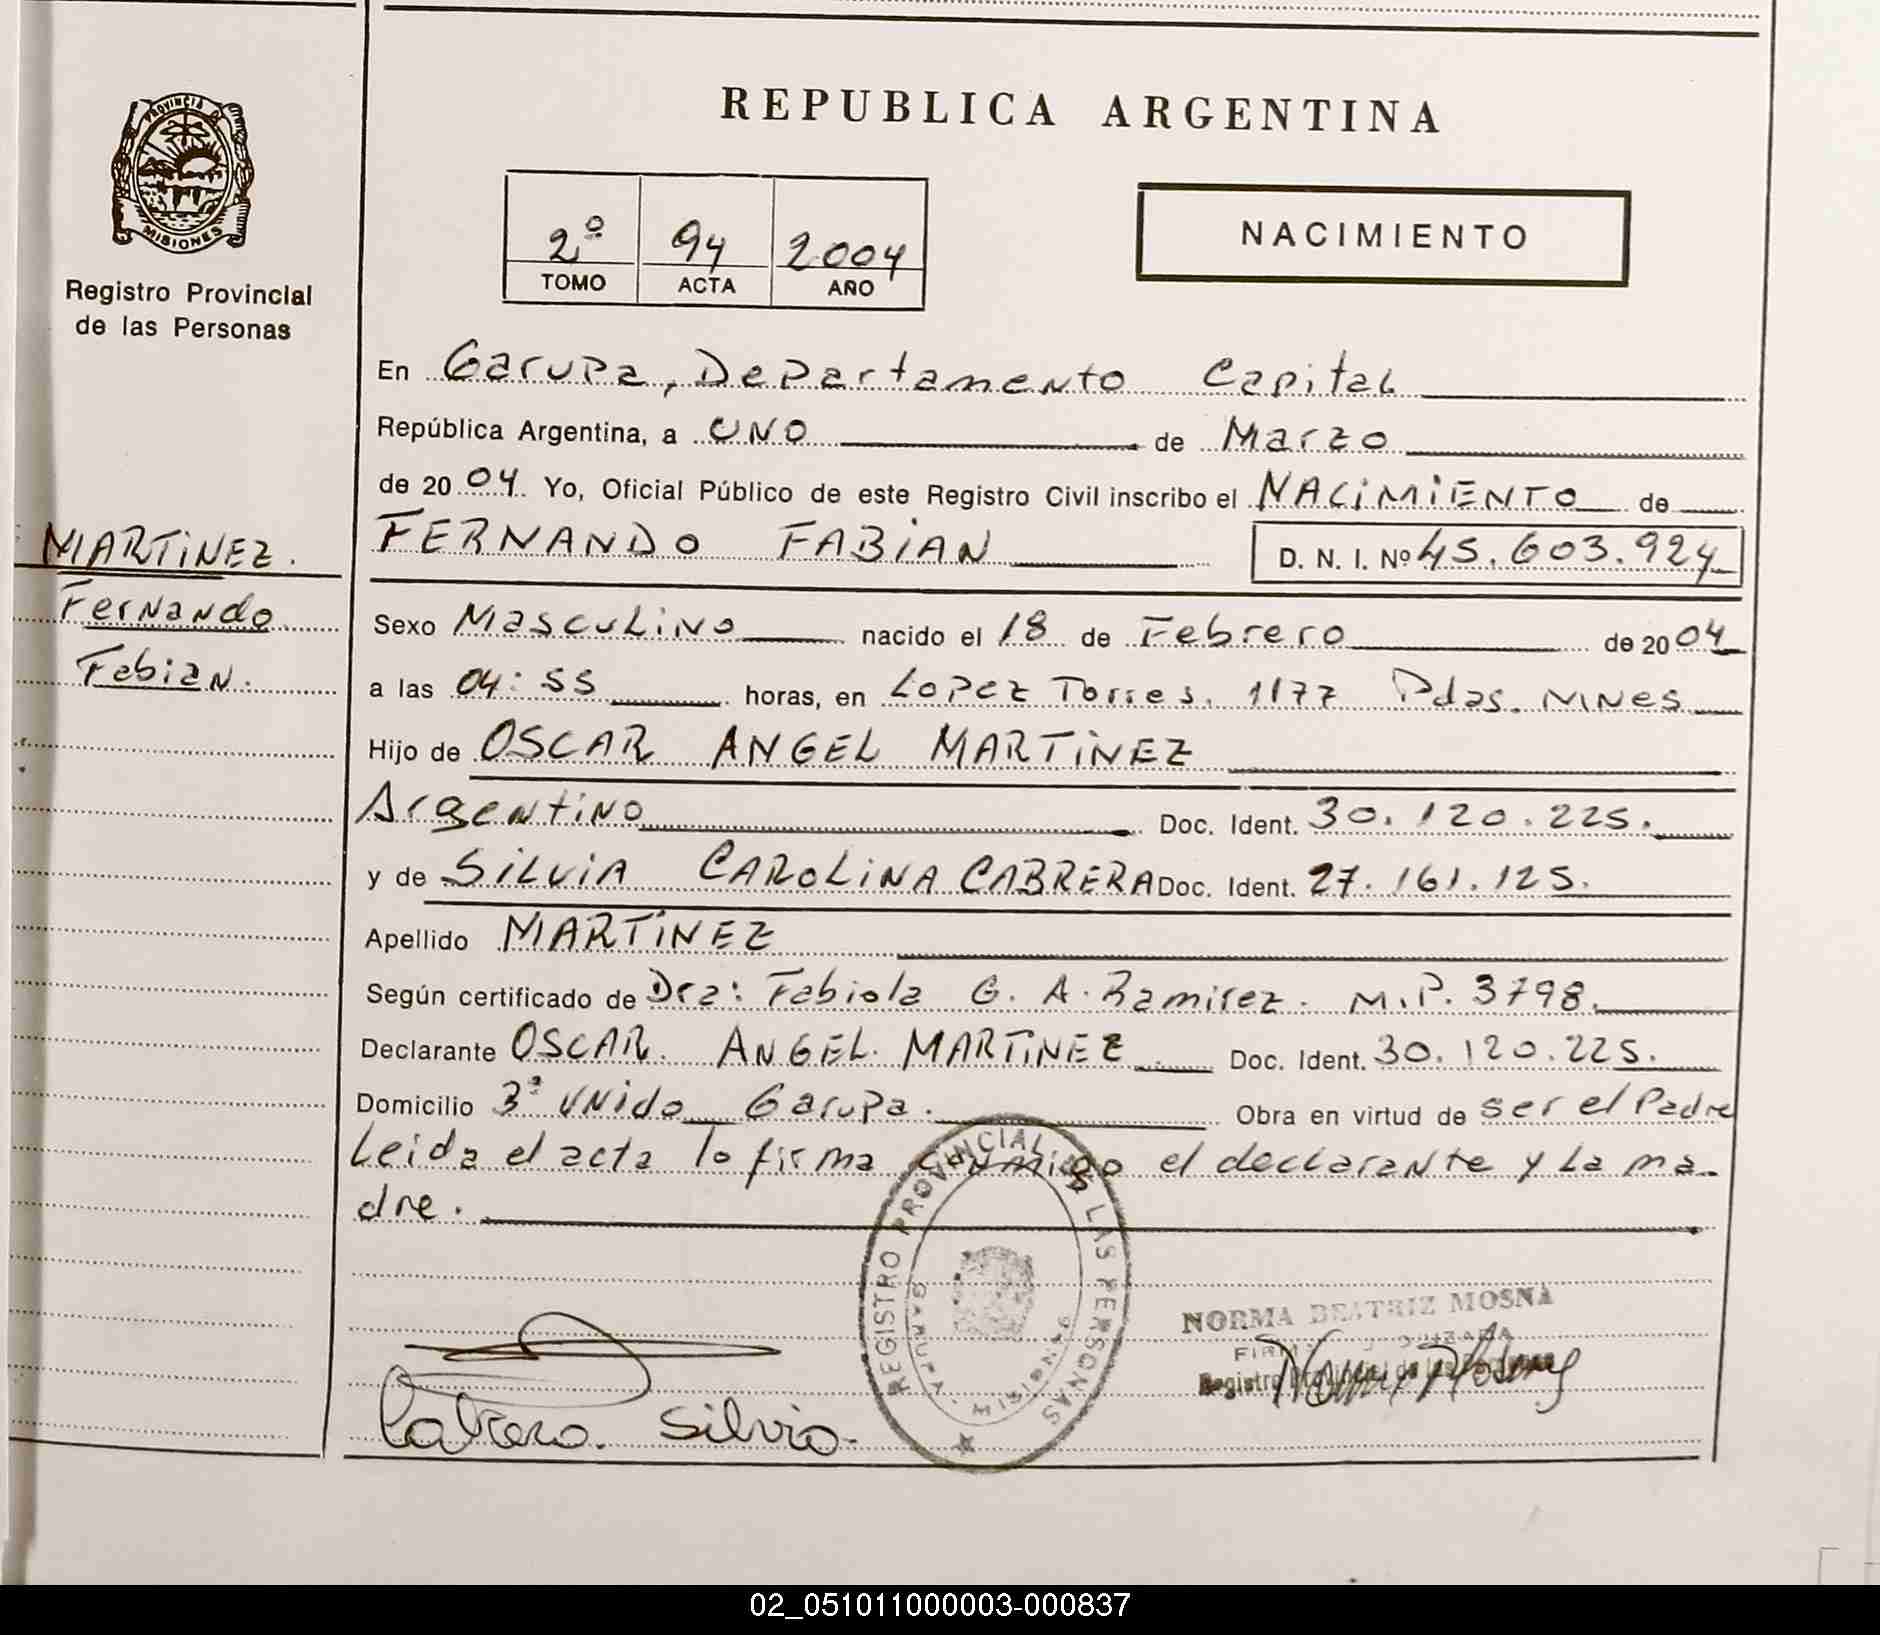 REPUBLICA ARGENTINA
PROVINCIA DE
MISIONES
Registro Provincial
de las Personas
2º 94 2004
TOMO ACTA AÑO
NACIMIENTO
En Garupa, Departamento Capital
República Argentina, a UNO de Marzo
de 2004. Yo, Oficial Público de este Registro Civil inscribo el NACIMIENTO de
MARTINEZ.
Fernando
Fabian.
FERNANDO FABIAN D. N. I. Nº 45.603.924
Sexo Masculino nacido el 18 de Febrero de 2004
a las 04:55 horas, en Lopez Torres. 1177 Pdas. MNES
Hijo de OSCAR ANGEL MARTINEZ
Argentino Doc. Ident. 30.120.225.
y de SILVIA CAROLINA CABRERA Doc. Ident. 27.161.125.
Apellido MARTINEZ
Según certificado de Dra: Fabiola G. A. Ramirez. M.P. 3798.
Declarante OSCAR. ANGEL. MARTINEZ Doc. Ident. 30.120.225.
Domicilio 3ª UNida Garupa. Obra en virtud de ser el Padre
Leida el acta lo firma conmigo el declarante y La ma-
dre.
REGISTRO PROVINCIAL DE LAS PERSONAS
GARUPA - MISIONES
NORMA BEATRIZ MOSNA
FIRMA AUTORIZADA
Registro Provincial de las Personas
Cabrera. Silvia.
02_051011000003-000837